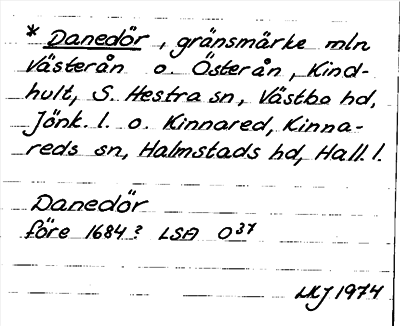 * Danedör, gränsmärke mln
Västerån o. Österån, Kind-
hult, S. Hestra sn, Västbo hd,
Jönk. l. o. Kinnared, Kinna-
reds sn, Halmstads hd, Hall. l.
Danedör
före 1684? LSA O37
LKJ 1974